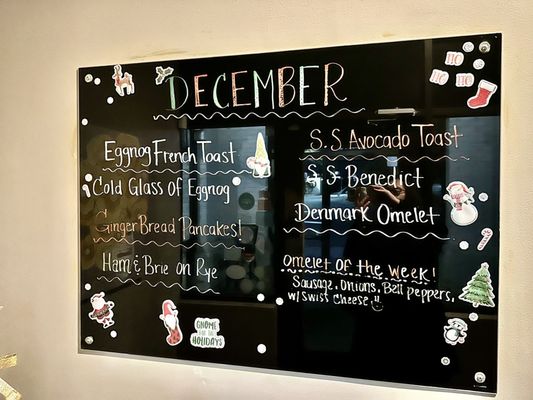 DECEMBER
HO
HO
HO
Eggnog French Toast
Cold Glass of Eggnog
GingerBread Pancakes!
Ham & Brie on Rye
GNOME
FOR THE
HOLIDAYS
S.S Avocado Toast
S.S Benedict
Denmark Omelet
Omelet of the week!
Sausage, Onions, Bell peppers,
w/ Swist Cheese